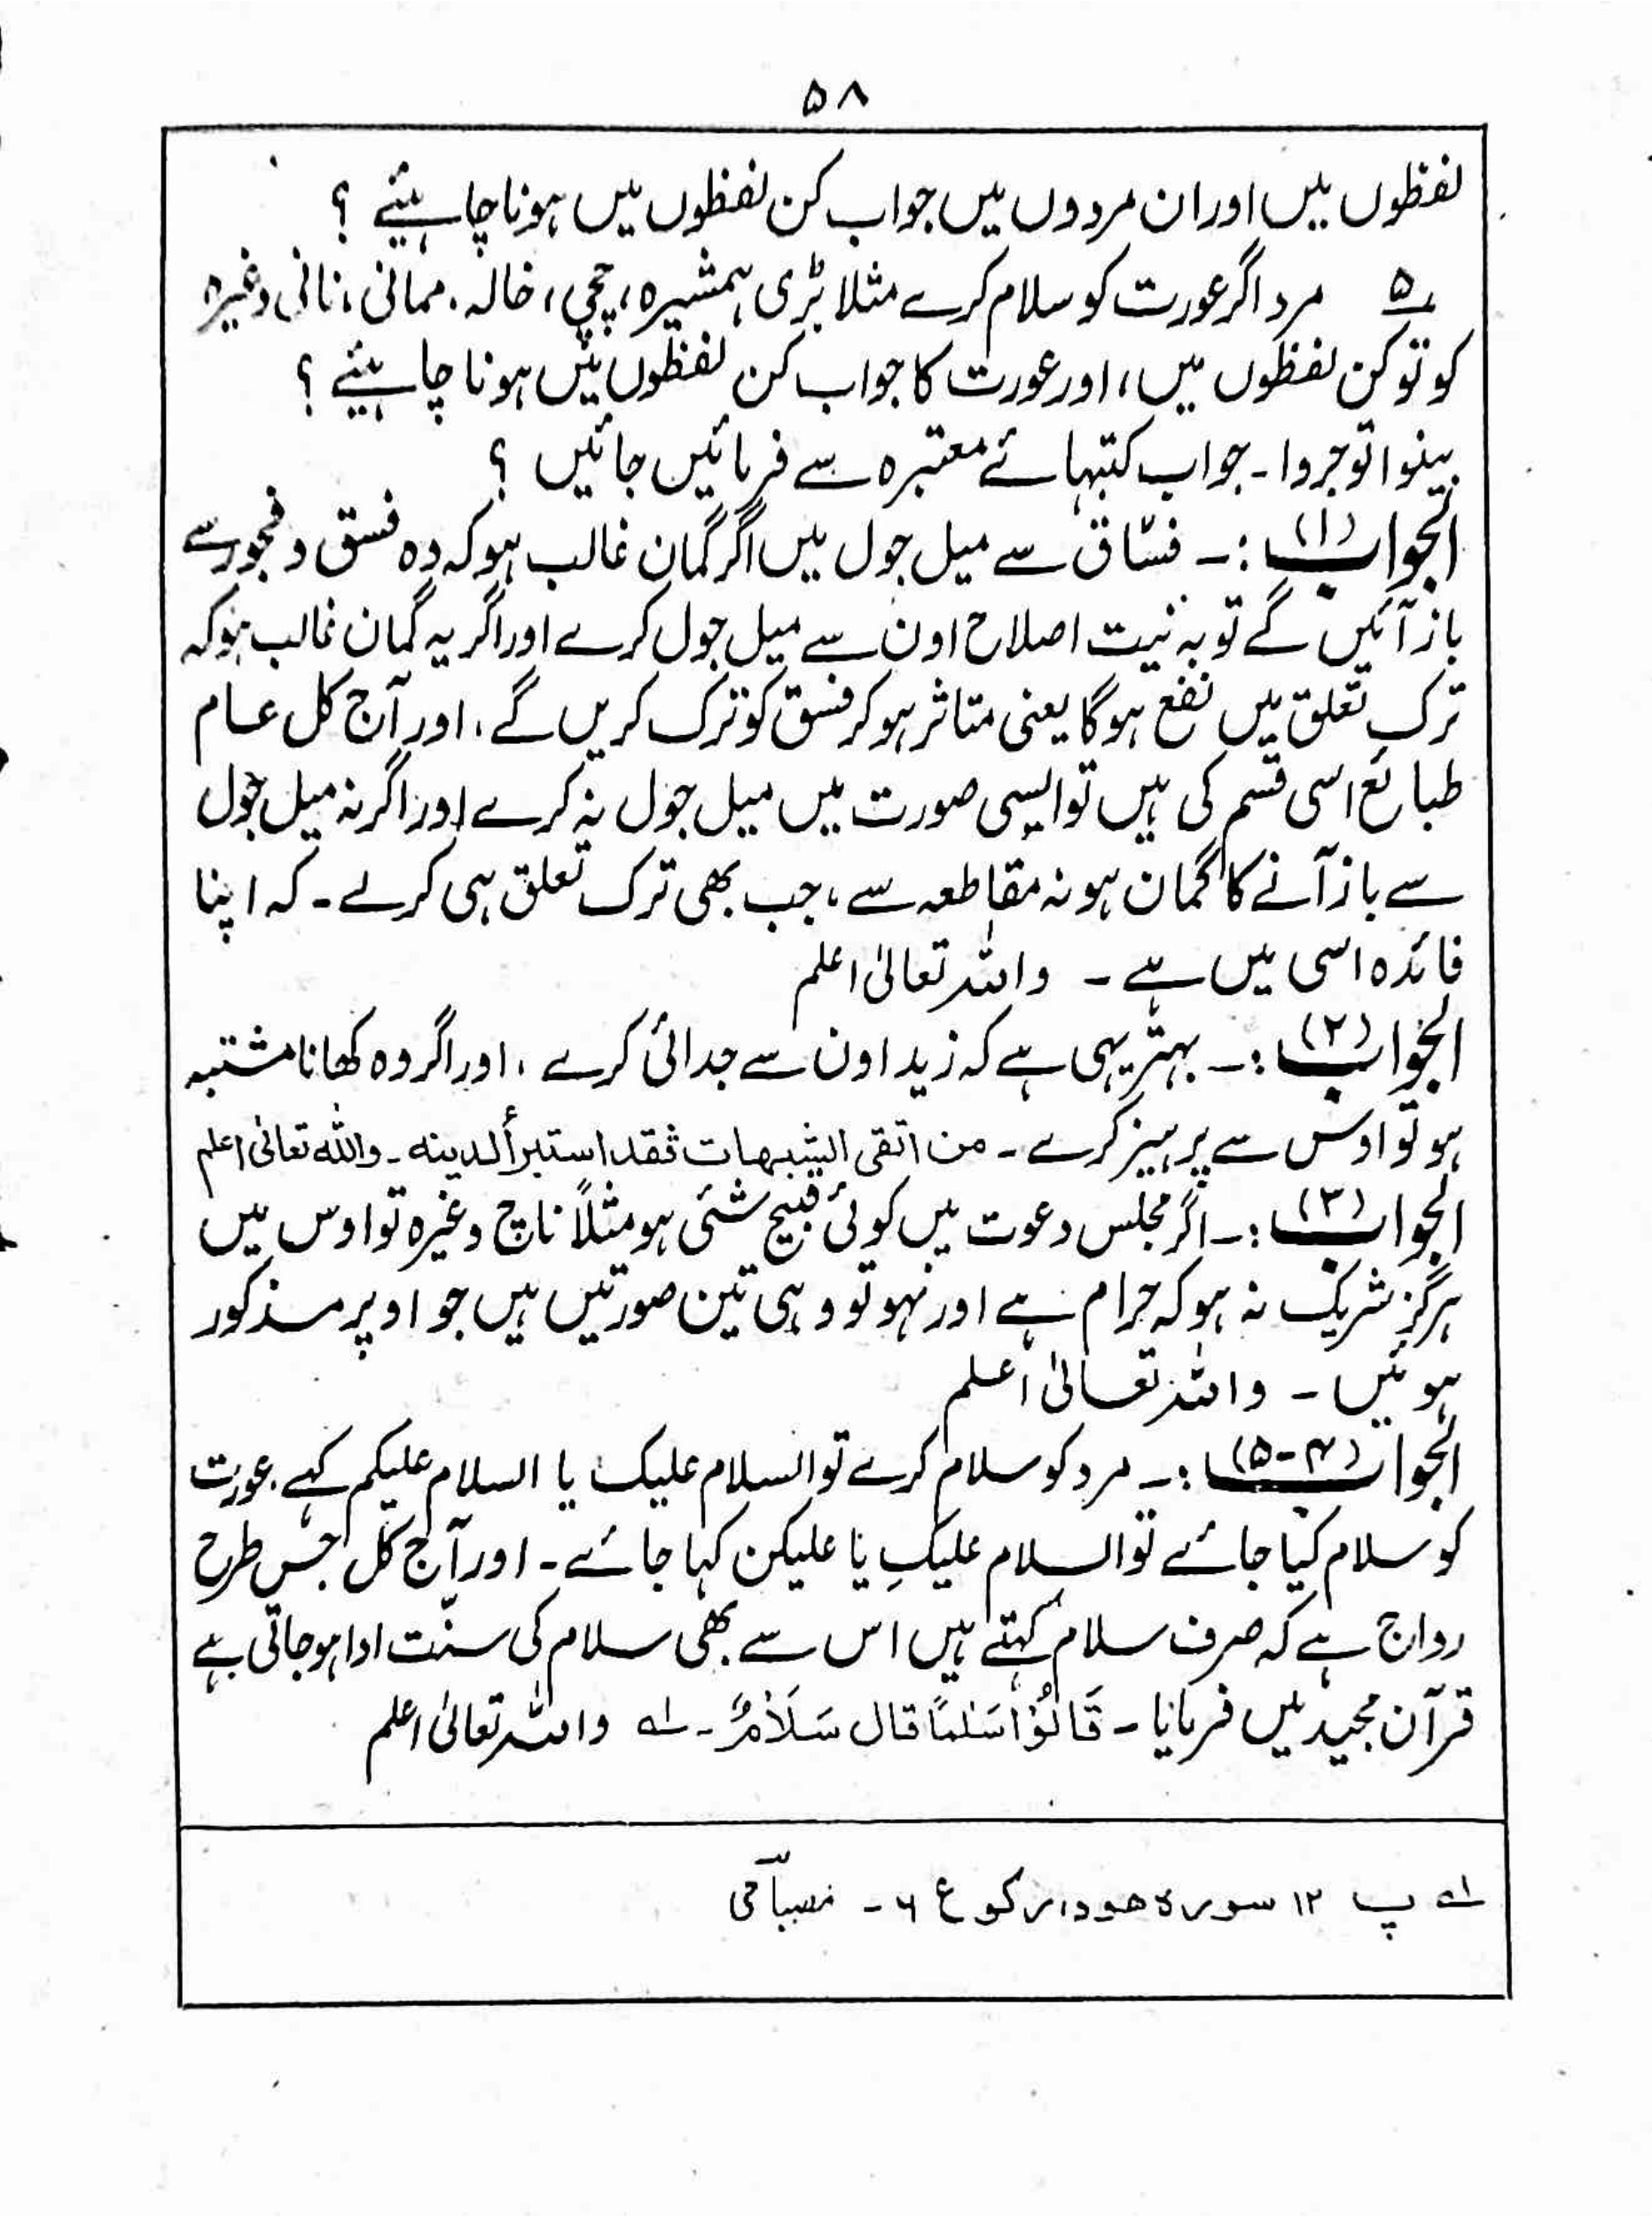 ۵۸
لفظوں میں اور ان مردوں میں جواب کن لفظوں میں ہونا چاہیئے ؟
۵ مرد اگر عورت کو سلام کرے مثلا بڑی ہمشیرہ، چچی، خالہ، ممانی، نانی وغیرہ
کو تو کن لفظوں میں، اور عورت کا جواب کن لفظوں میں ہونا چاہیئے ؟
بینوا توجروا ۔ جواب کتبہائے معتبرہ سے فرمائیں جائیں ؟
الجواب (۱) :۔ فسّاق سے میل جول میں اگر گمان غالب ہو کہ وہ فسق و فجور سے
باز آئیں گے تو بہ نیت اصلاح اون سے میل جول کرے اور اگر یہ گمان غالب ہو کہ
ترک تعلق میں نفع ہوگا یعنی متاثر ہو کر فسق کو ترک کریں گے، اور آج کل عام
طبائع اسی قسم کی ہیں تو ایسی صورت میں میل جول نہ کرے اور اگر نہ میل جول
سے باز آنے کا گمان ہو نہ مقاطعہ سے، جب بھی ترک تعلق ہی کرے ۔ کہ اپنا
فائدہ اسی میں ہے ۔ واللہ تعالیٰ اعلم
الجواب (۲) :۔ بہتر یہی ہے کہ زید اون سے جدائی کرے ، اور اگر وہ کھانا مشتبہ
ہو تو اوس سے پرہیز کرے ۔ من اتقی الشبہات فقد استبرأ لدینہ ۔ واللہ تعالیٰ اعلم
الجواب (۳) :۔ اگر مجلس دعوت میں کوئی قبیح شئی ہو مثلاً ناچ وغیرہ تو اوس میں
ہرگز شریک نہ ہو کہ حرام ہے اور نہو تو وہی تین صورتیں ہیں جو اوپر مذکور
ہوئیں ۔ واللہ تعالیٰ اعلم
الجواب (۴-۵) :۔ مرد کو سلام کرے تو السلام علیک یا السلام علیکم کہے، عورت
کو سلام کیا جائے تو السلام علیکِ یا علیکن کہا جائے ۔ اور آج کل جس طرح
رواج ہے کہ صرف سلام کہتے ہیں اس سے بھی سلام کی سنّت ادا ہو جاتی ہے
قرآن مجید میں فرمایا ۔ قَالُوْا سَلٰمًا قال سَلَامٌ ۔ لہ واللہ تعالیٰ اعلم
لہ پ ۱۲ سورہ ھود، رکوع ۶ ۔ مصباحی